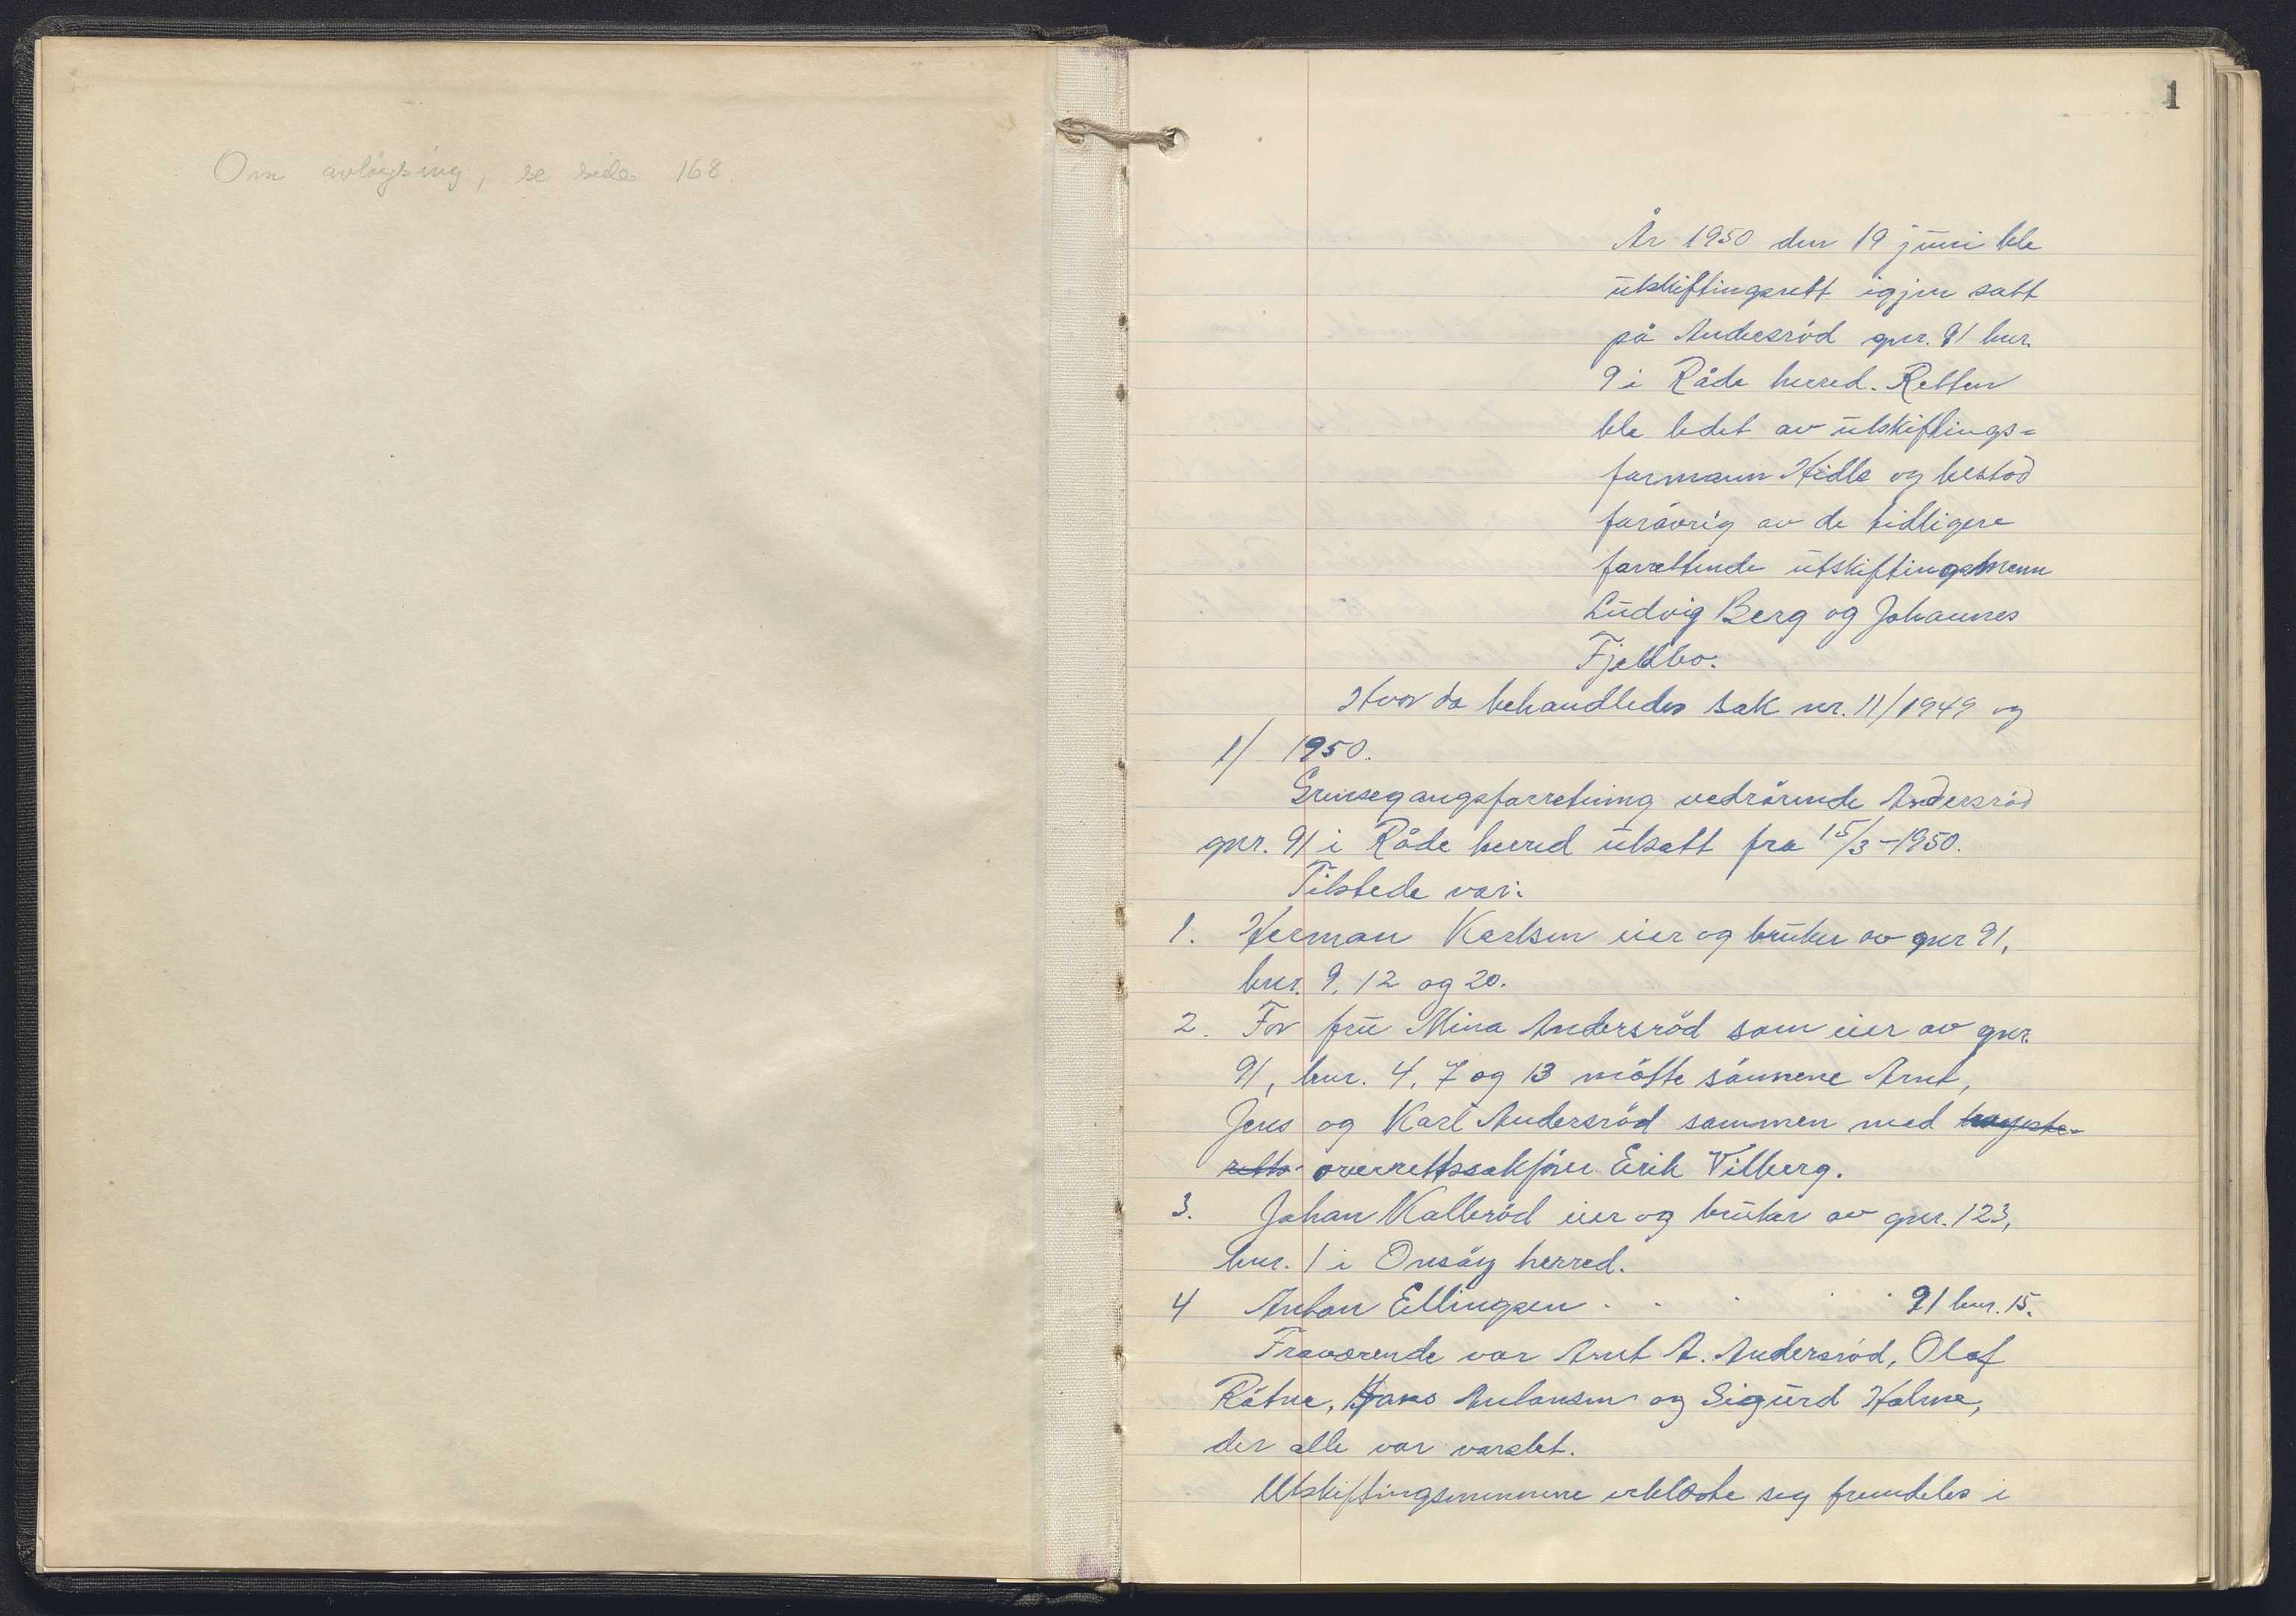 Om avløysing, se side 168.
1
År 1950 den 19 juni ble
utskiftingsrett igjen satt
på Andersröd gnr. 91 bnr.
9 i Råde herred. Retten
ble ledet av utskiftings=
formann Hidle og bestod
forövrig av de tidligere
forrettende utskiftingsmenn
Ludvig Berg og Johannes
Fjeldbo.
Hvor da behandledes sak nr. 11/1949 og
1/ 1950.
Grensegangsforretning vedrörende Andersröd
gnr. 91 i Råde herred utsatt fra 15/3-1950.
Tilstede var:
1. Herman Karlsen eier og bruker av gnr 91,
bnr. 9, 12 og 20.
2. For fru Mina Andersröd som eier av gnr.
91, bnr. 4, 7 og 13 mötte sönnene Arnt,
Jens og Karl Andersröd sammen med høyeste-
retts- overrettssakförer Erik Vilberg.
3. Johan Kalleröd eier og bruker av gnr. 123,
bnr. 1 i Onsöy herred.
4 Anton Ellingsen . . . . . 91 bnr. 15.
Fraværende var Arnt A. Andersröd, Olaf
Råtne, Hans Antonsen og Sigurd Holme,
der alle var varslet.
Utskiftingsmennene erklærte seg fremdeles i